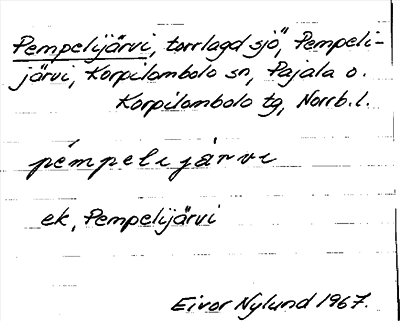 Pempelijärvi, torrlagd sjö, Pempeli-
järvi, Korpilombolo sn, Pajala o.
Korpilombolo tg, Norrb. l.
pémpeli̮jàrvi
ek, Pempelijärvi
Eivor Nylund 1967.